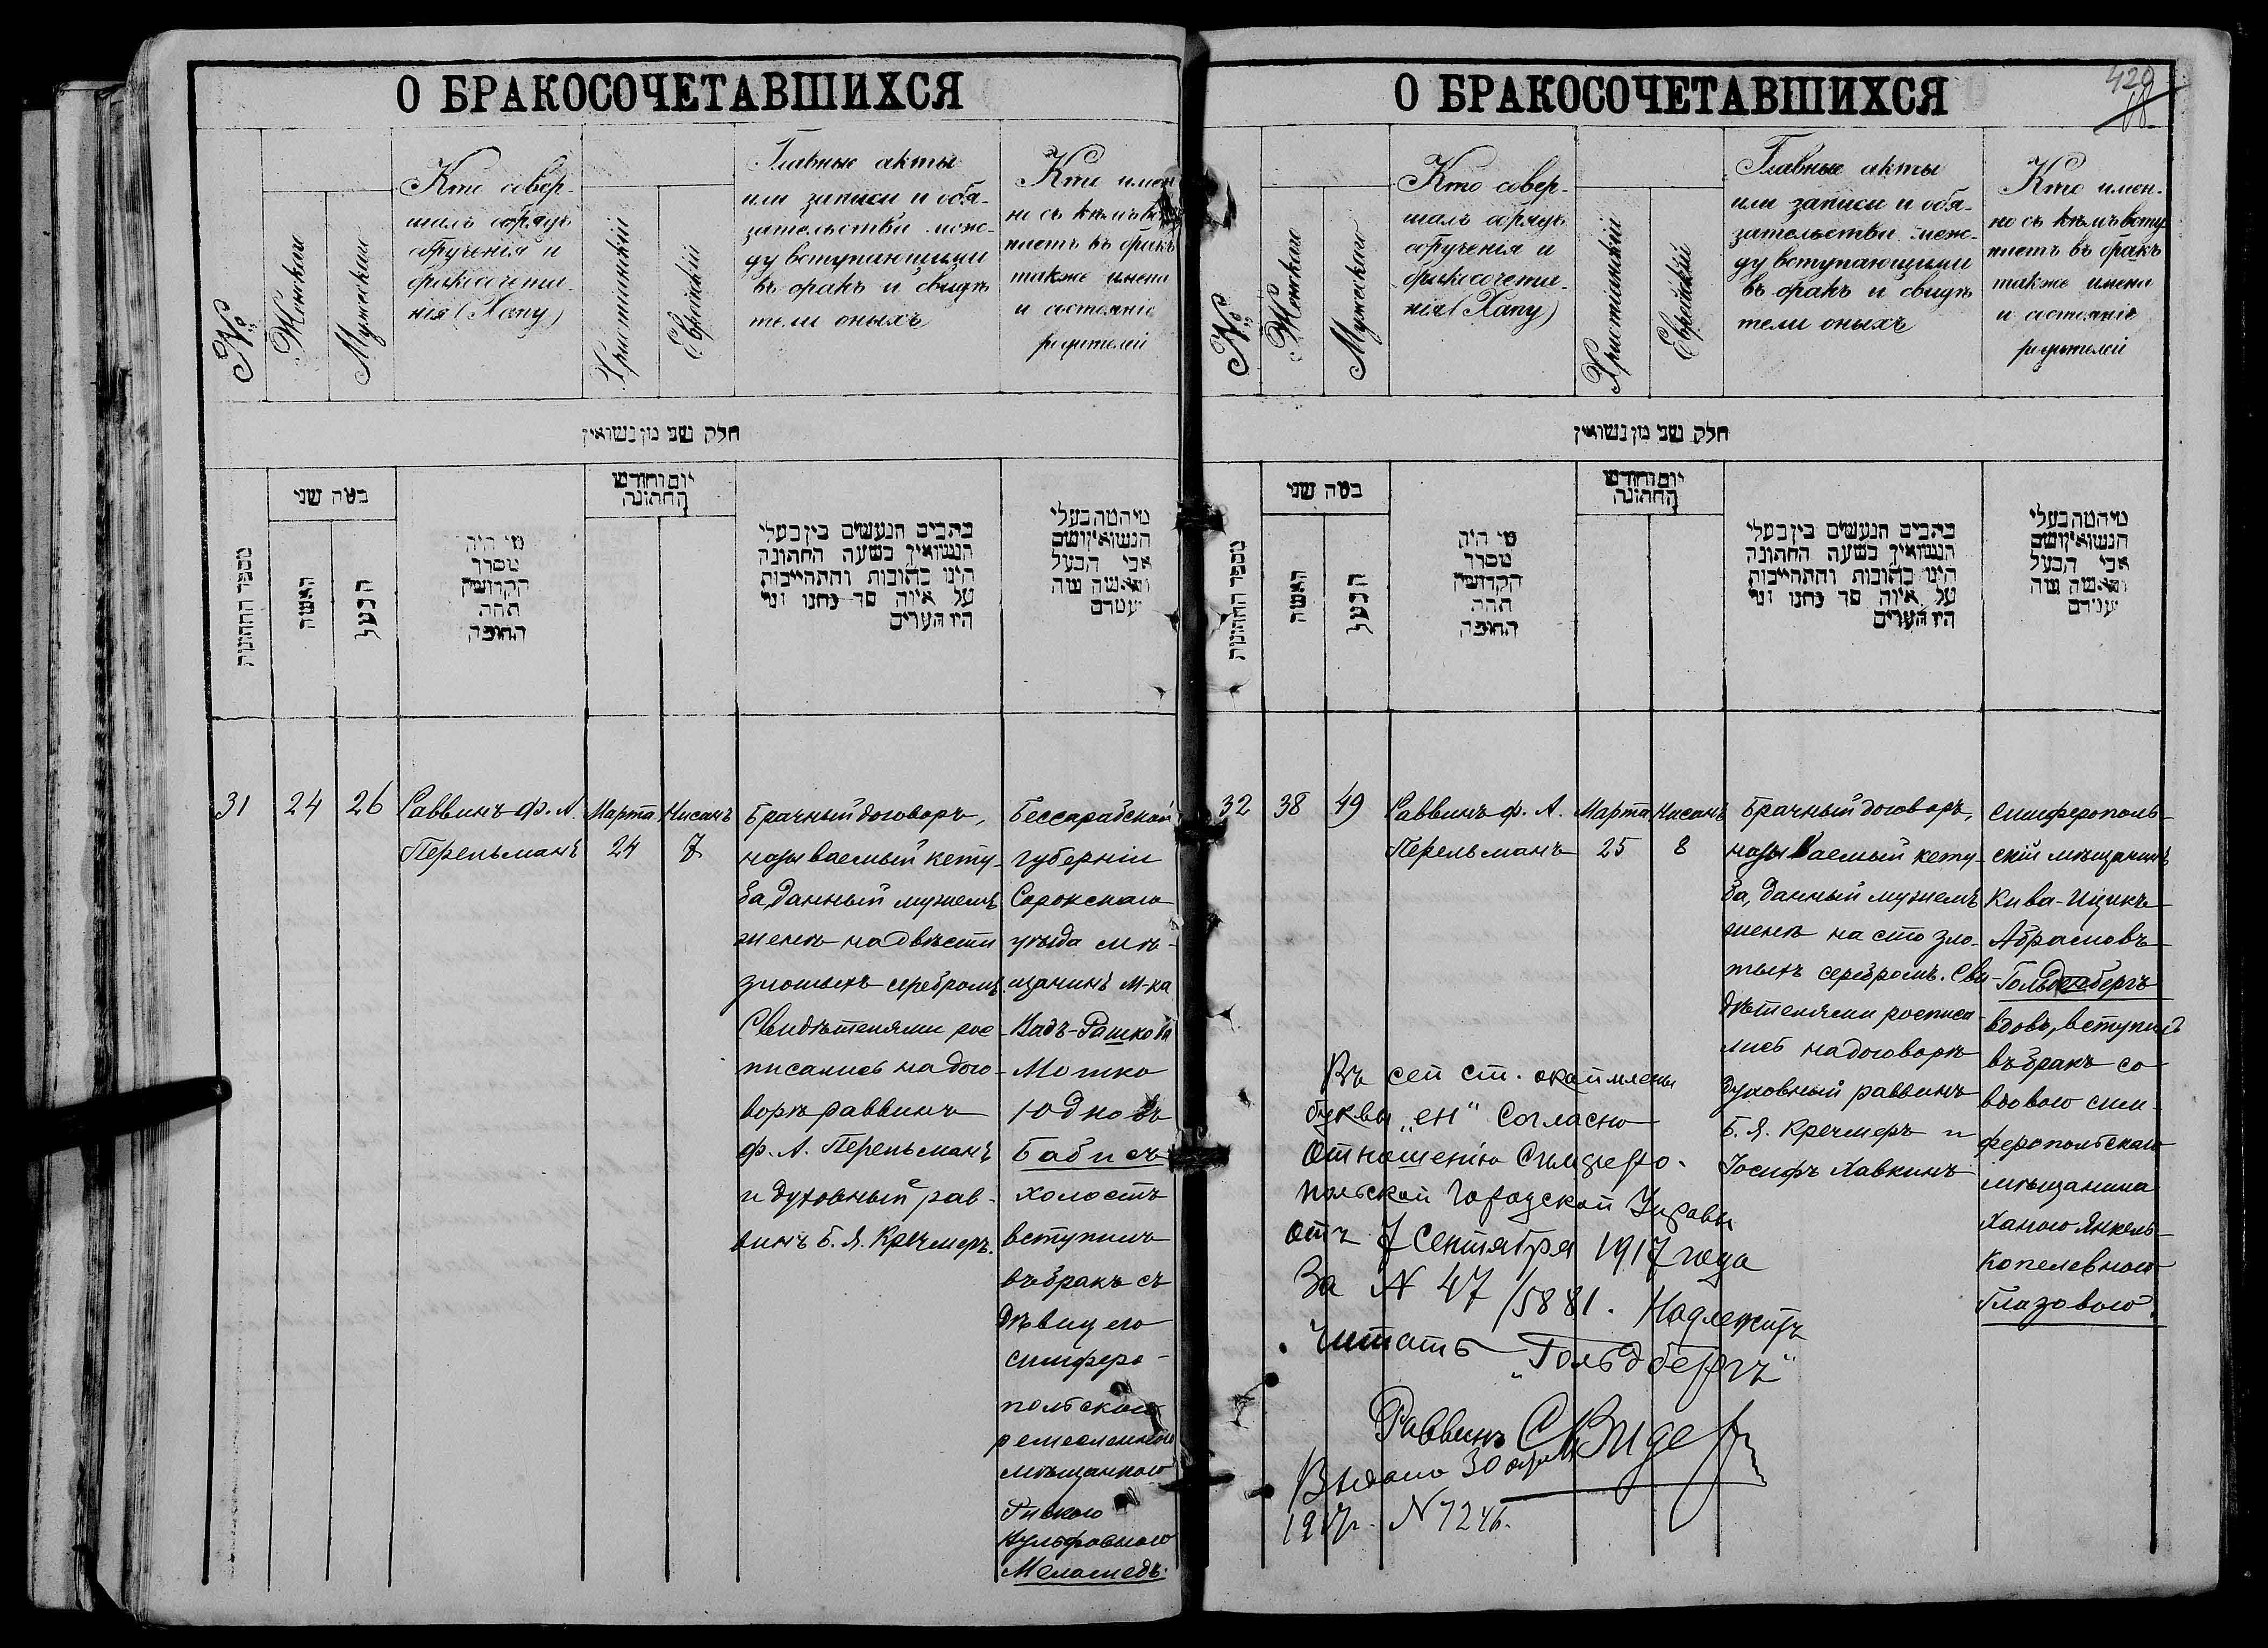 О БРАКОСОЧЕТАВШИХСЯ
№
Женскаго
Мужескаго
Кто совер-
шалъ обрядъ
обрученія и
бракосочета-
нія (Хапу)
Христіанскій
Еврейскій
Главные акты
или записи и обя-
зательства меж-
ду вступающими
въ бракъ и свидѣ
тели оныхъ
Кто имен
но съ кѣмъ всту
паетъ въ бракъ
также имена
и состояніе
родителей
חלק שני מן נשואין
מספר החתונות
בטה שני
האשה
הבעל
מי היה
מסדר
הקדושין
תחת
החופה
יום וחודש
החתונה
כתבים הנעשים בין בעלי
הנשואין בשעה החתונה
היינו כתובות והתחייבות
על איזה סך נתנו ומי
היו העדים
מי המה בעלי
הנשואין ושם
אבי הבעל
והאשה
31
24
26
Раввинъ Ф. А.
Перельманъ
Марта
24
Нисанъ
7
Брачный договоръ,
называемый кету-
ба, данный мужемъ
женѣ на двѣсти
злотыхъ серебромъ.
Свидѣтелями рос-
писались на дого-
ворѣ раввинъ
Ф. А. Перельманъ
и духовный рав-
винъ Б. Я. Кречмеръ.
Бессарабской
губерніи
Сорокскаго
уѣзда мѣ-
щанинъ м-ка
Вадъ-Рашкова
Мошко
Юдковъ
Бабисъ
холостъ
вступилъ
въ бракъ съ
дѣвицею
симферо-
польскою
ремесленною
мѣщанкою
Ривкою
Вульфовною
Меламедъ.
О БРАКОСОЧЕТАВШИХСЯ
420
68
№
Женскаго
Мужескаго
Кто совер-
шалъ обрядъ
обрученія и
бракосочета-
нія (Хапу)
Христіанскій
Еврейскій
Главные акты
или записи и обя-
зательства меж-
ду вступающими
въ бракъ и свидѣ
тели оныхъ
Кто имен-
но съ кѣмъ всту
паетъ въ бракъ
также имена
и состояніе
родителей
חלק שני מן נשואין
מספר החתונות
בטה שני
האשה
הבעל
מי היה
מסדר
הקדושין
תחת
החופה
יום וחודש
החתונה
כתבים הנעשים בין בעלי
הנשואין בשעה החתונה
היינו כתובות והתחייבות
על איזה סך נתנו ומי
היו העדים
מי המה בעלי
הנשואין ושם
אבי הבעל
והאשה
32
38
49
Раввинъ Ф. А.
Перельманъ
Марта
25
Нисанъ
8
Брачный договоръ,
называемый кету-
ба, данный мужемъ
женѣ на сто зло-
тыхъ серебромъ. Сви-
дѣтелями росписа-
лись на договорѣ
духовный раввинъ
Б. Я. Кречмеръ и
Іосифъ Хавкинъ
Симферополь-
скій мѣщанинъ
Кива-Ицикъ
Абрамовъ
Гольденбергъ
вдовъ, вступилъ
въ бракъ со
вдовою сим-
феропольскаго
мѣщанина
Ханою Янкель-
Копелевною
Глазовою.
Въ сей ст. окаймлены
буквы „ен" согласно
отношенію Симферо-
польской Городской Управы
отъ 7 Сентября 1917 года
за N 47/5881. Надлежитъ
читать „Гольдбергъ"
Раввинъ
Выдано 30
1917г. N 7246.